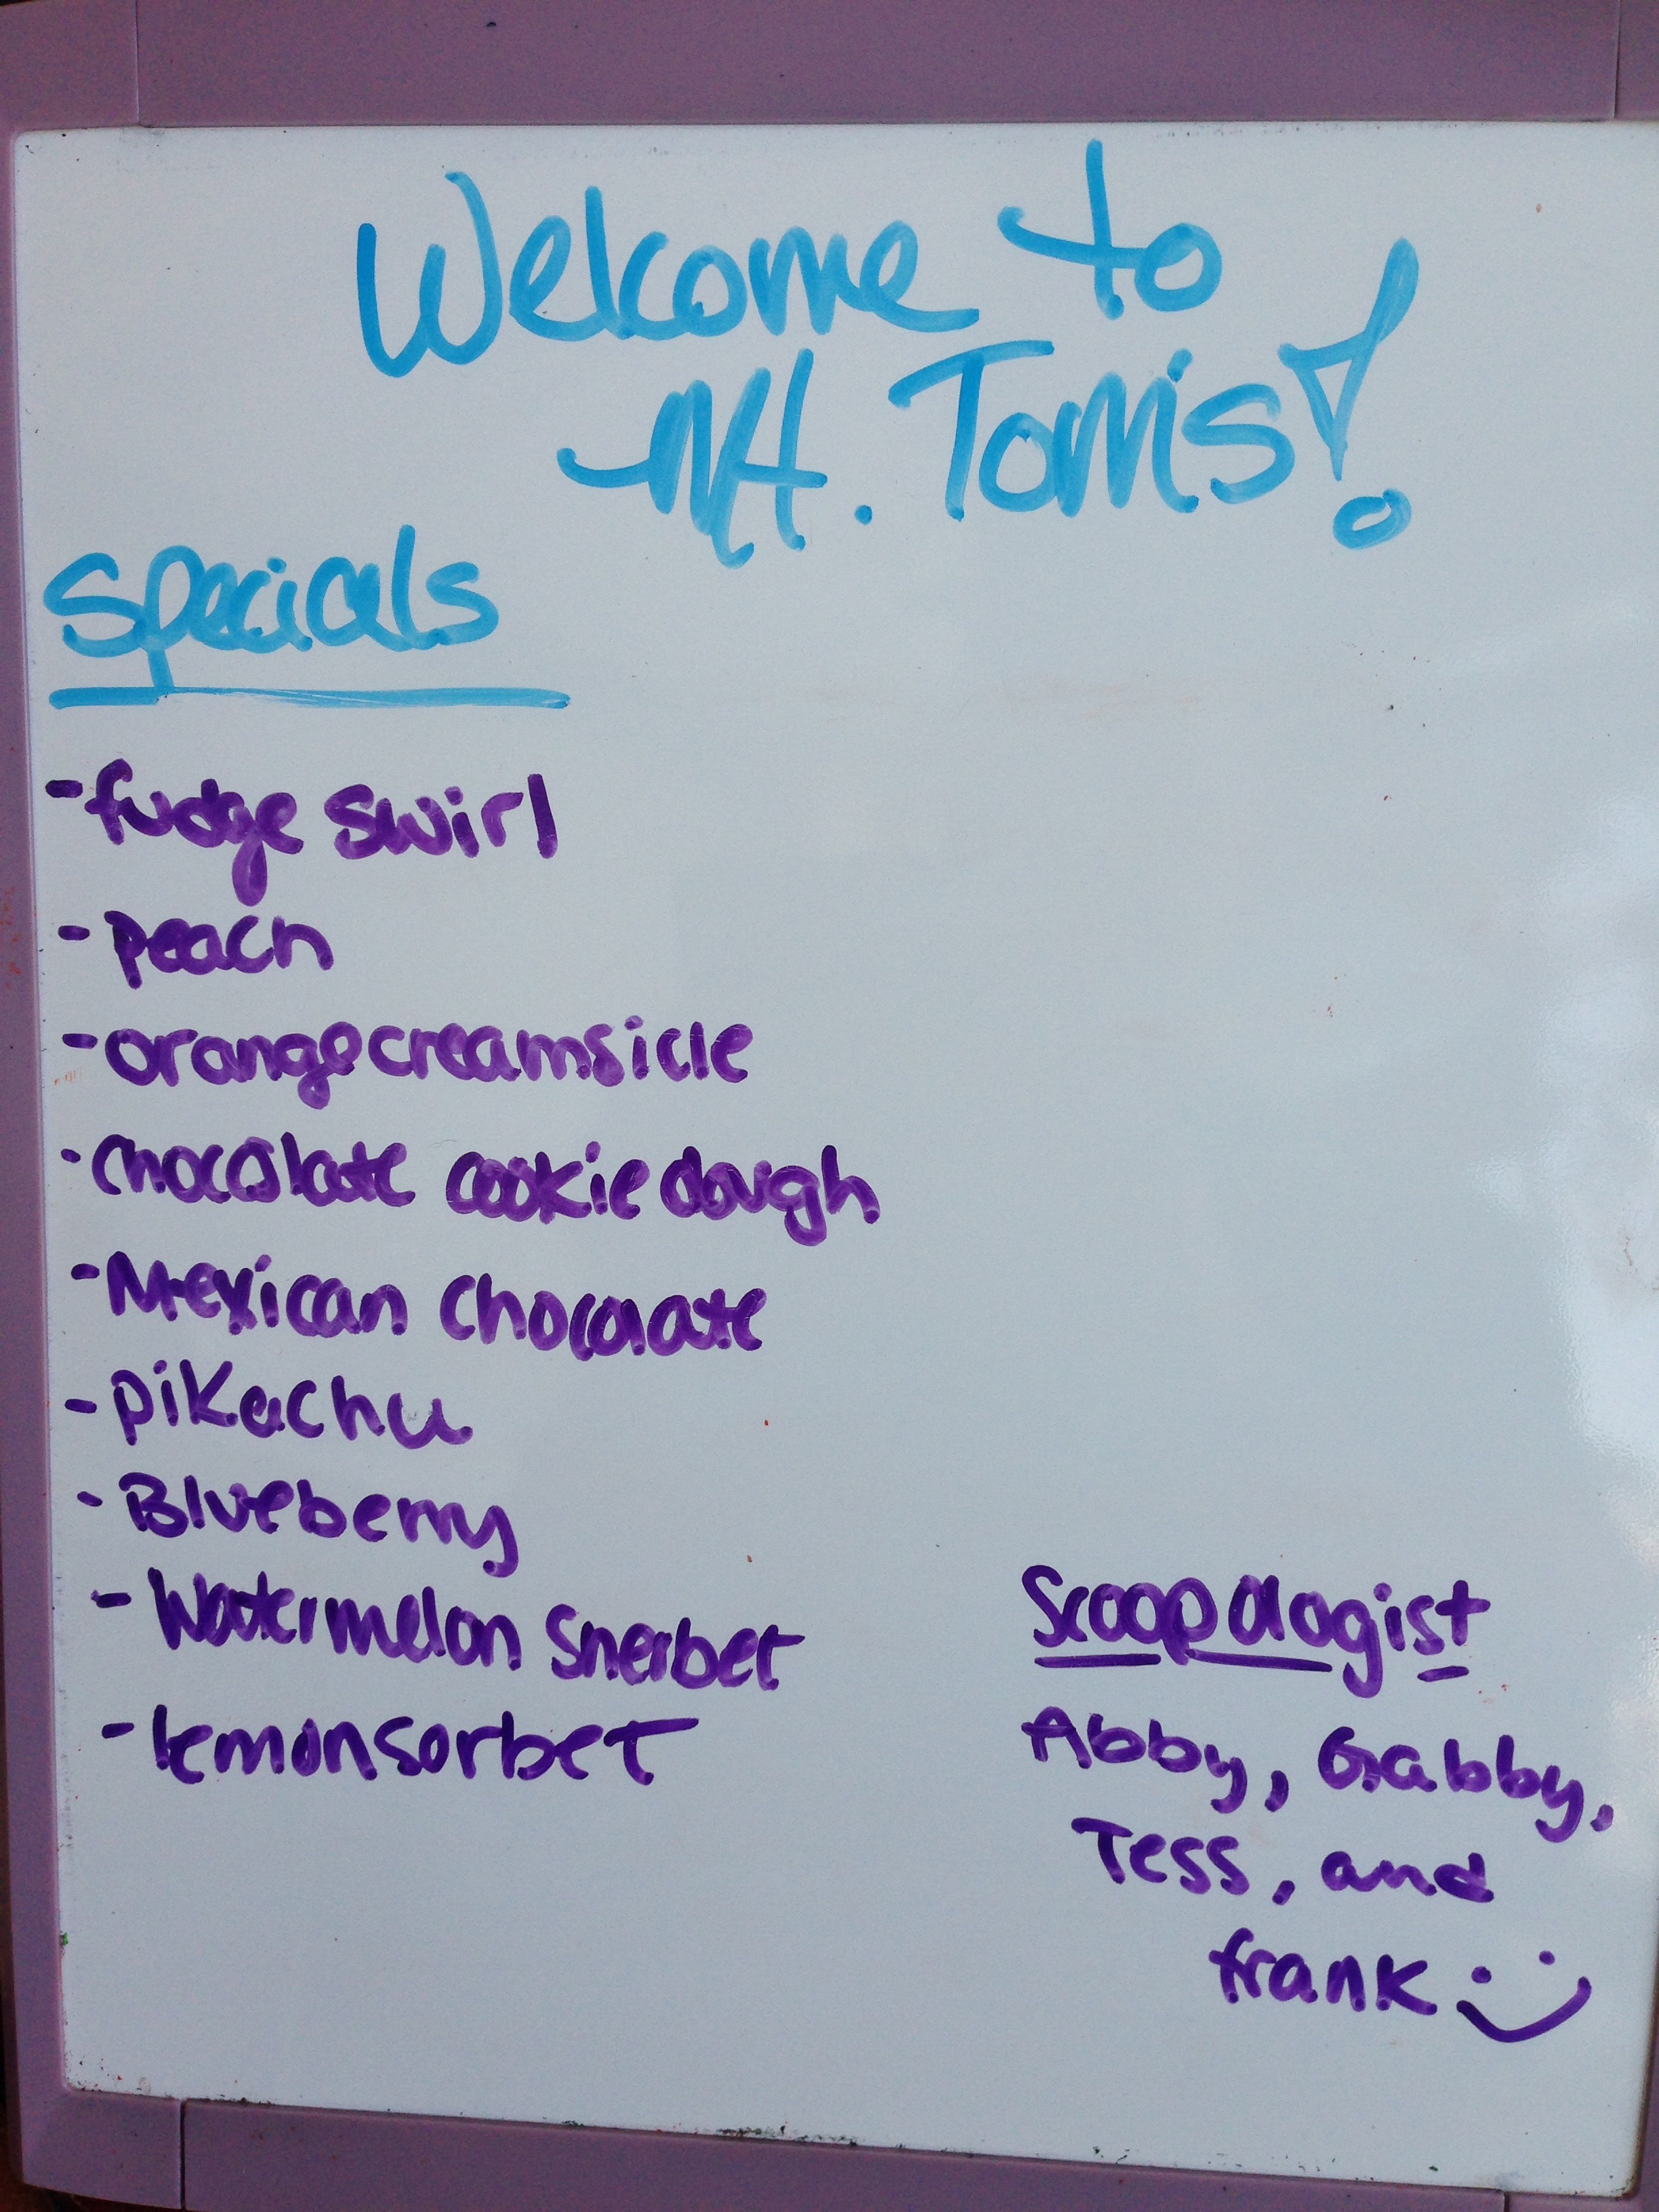 Welcome to
Mt. Tom's!
Specials
- fudge swirl
- peach
- orange creamsicle
- chocolate cookie dough
- Mexican chocolate
- pikachu
- Blueberry
- Watermelon Sherbet
- lemon sorbet
Scoopologist
Abby, Gabby,
Tess, and
frank